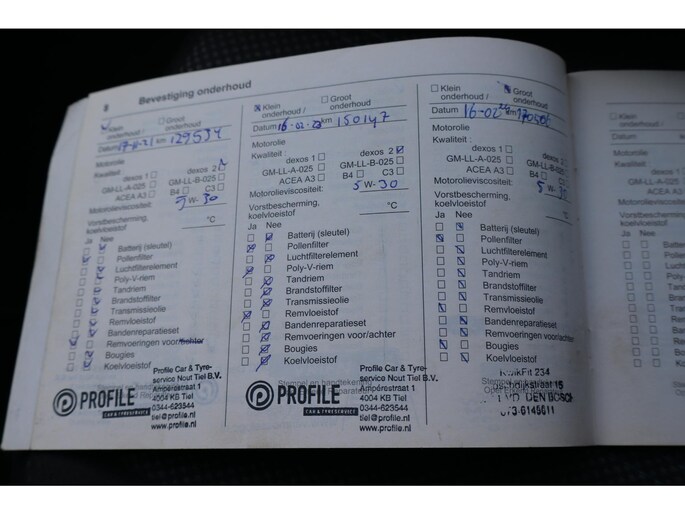 8 Bevestiging onderhoud
Klein onderhoud / Groot onderhoud
Datum 17-11-21 km 129534
Motorolie
Kwaliteit dexos 1 dexos 2
GM-LL-A-025 GM-LL-B-025
ACEA A3 B4 C3
Motorolieviscositeit: 5 W- 30
Vorstbescherming, koelvloeistof °C
Ja Nee
Batterij (sleutel)
Pollenfilter
Luchtfilterelement
Poly-V-riem
Tandriem
Brandstoffilter
Transmissieolie
Remvloeistof
Bandenreparatieset
Remvoeringen voor/achter
Bougies
Koelvloeistof
PROFILE
CAR & TYRESERVICE
Profile Car & Tyre-
service Nout Tiel B.V.
Ampèrestraat 1
4004 KB Tiel
0344-623544
tiel@profile.nl
www.profile.nl
Klein onderhoud / Groot onderhoud
Datum 16-02-23 km 150147
Motorolie
Kwaliteit : dexos 1 dexos 2
GM-LL-A-025 GM-LL-B-025
ACEA A3 B4 C3
Motorolieviscositeit: 5 W- 30
Vorstbescherming, koelvloeistof °C
Ja Nee
Batterij (sleutel)
Pollenfilter
Luchtfilterelement
Poly-V-riem
Tandriem
Brandstoffilter
Transmissieolie
Remvloeistof
Bandenreparatieset
Remvoeringen voor/achter
Bougies
Koelvloeistof
Stempel en handtekening
PROFILE
CAR & TYRESERVICE
Profile Car & Tyre-
service Nout Tiel B.V.
Ampèrestraat 1
4004 KB Tiel
0344-623544
tiel@profile.nl
www.profile.nl
Klein onderhoud / Groot onderhoud
Datum 16-02 24 km
Motorolie
Kwaliteit : dexos 1 dexos 2
GM-LL-A-025 GM-LL-B-025
ACEA A3 B4 C3
Motorolieviscositeit: 5 W- 30
Vorstbescherming, koelvloeistof °C
Ja Nee
Batterij (sleutel)
Pollenfilter
Luchtfilterelement
Poly-V-riem
Tandriem
Brandstoffilter
Transmissieolie
Remvloeistof
Bandenreparatieset
Remvoeringen voor/achter
Bougies
Koelvloeistof
KwikFit 234
DEN BOSCH
073-6145011